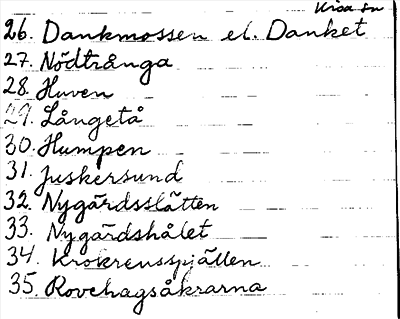 26. Dankmossen el. Danket
27. Nödtrånga
28. Huven
29. Långetå
30. Humpen
31. Juskersund
32. Nygärdsslätten
33. Nygärdshålet
34. Krokrensspjällen
35. Rovehagsåkrarna